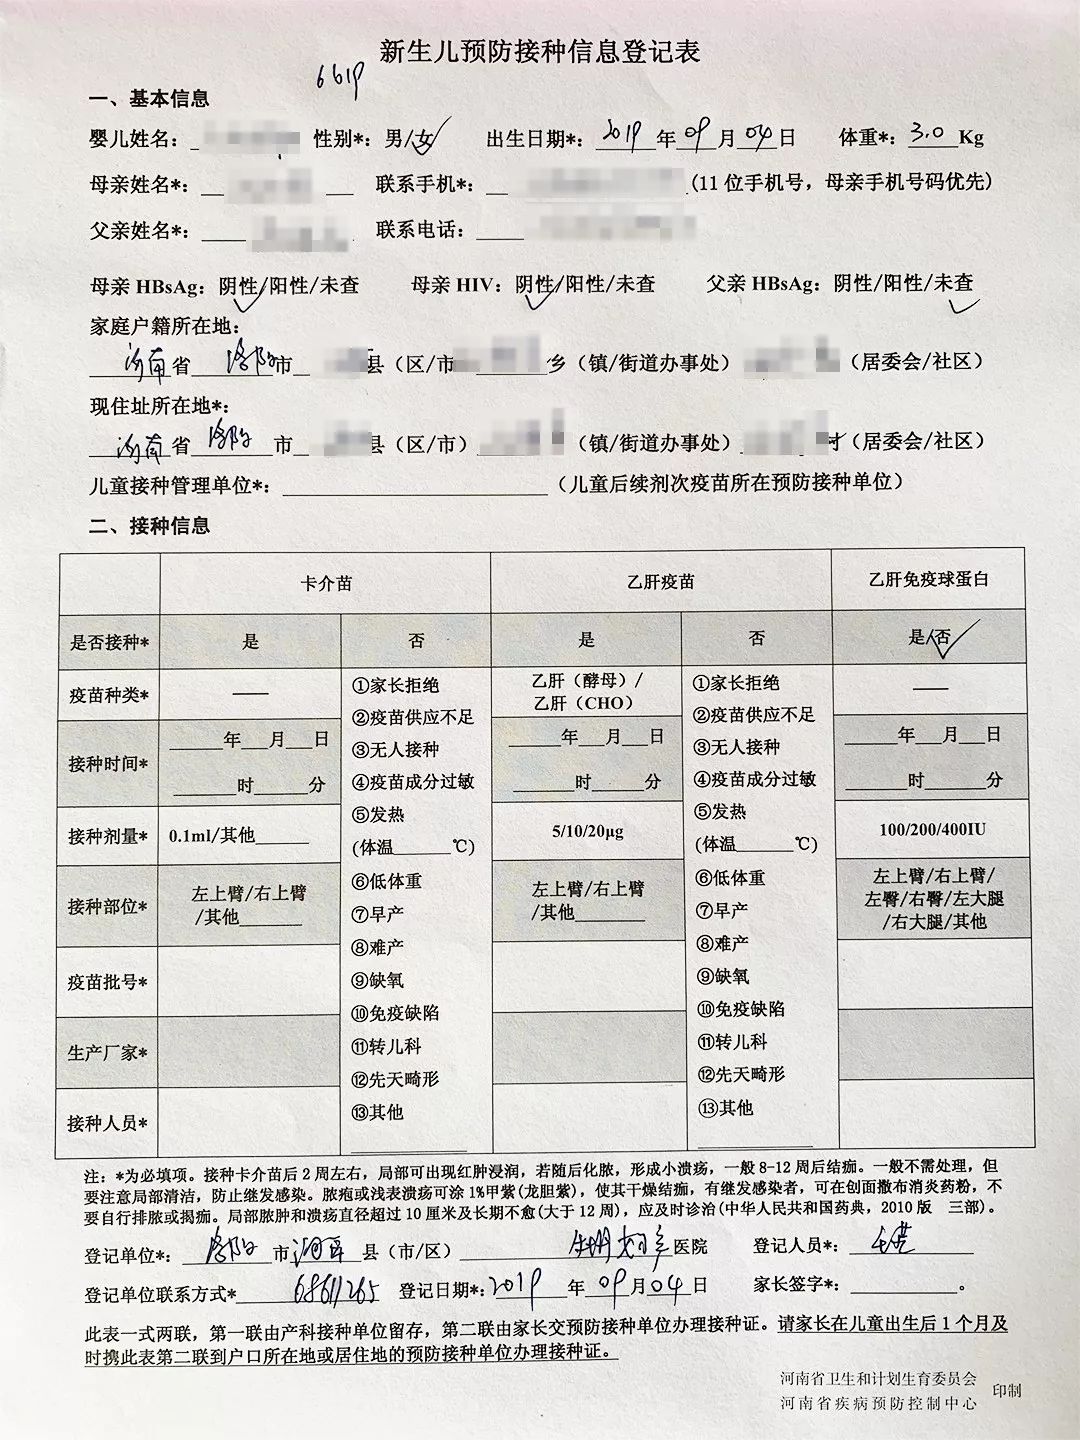 新生儿预防接种信息登记表
6619
一、基本信息
婴儿姓名： 性别*：男/女✓ 出生日期*：2019年09月04日 体重*：3.0Kg
母亲姓名*： 联系手机*： (11位手机号，母亲手机号码优先)
父亲姓名*： 联系电话：
母亲HBsAg：阴性/阳性/未查 母亲HIV：阴性/阳性/未查 父亲HBsAg：阴性/阳性/未查
家庭户籍所在地：
河南省洛阳市 县（区/市 乡（镇/街道办事处） （居委会/社区）
现住址所在地*：
河南省洛阳市 县（区/市） （镇/街道办事处） 村（居委会/社区）
儿童接种管理单位*：（儿童后续剂次疫苗所在预防接种单位）
二、接种信息
卡介苗 乙肝疫苗 乙肝免疫球蛋白
是否接种* 是 否 是 否 是/否✓
疫苗种类* —— 乙肝（酵母）/乙肝（CHO） ——
接种时间* ____年__月__日 ____时____分 ____年__月__日 ____时____分 ____年__月__日 ____时____分
接种剂量* 0.1ml/其他____ 5/10/20μg 100/200/400IU
接种部位* 左上臂/右上臂/其他____ 左上臂/右上臂/其他____ 左上臂/右上臂/左臀/右臀/左大腿/右大腿/其他
疫苗批号*
生产厂家*
接种人员*
①家长拒绝
②疫苗供应不足
③无人接种
④疫苗成分过敏
⑤发热
(体温____℃)
⑥低体重
⑦早产
⑧难产
⑨缺氧
⑩免疫缺陷
⑪转儿科
⑫先天畸形
⑬其他
①家长拒绝
②疫苗供应不足
③无人接种
④疫苗成分过敏
⑤发热
(体温____℃)
⑥低体重
⑦早产
⑧难产
⑨缺氧
⑩免疫缺陷
⑪转儿科
⑫先天畸形
⑬其他
注：*为必填项。接种卡介苗后2周左右，局部可出现红肿浸润，若随后化脓，形成小溃疡，一般8-12周后结痂。一般不需处理，但
要注意局部清洁，防止继发感染。脓疱或浅表溃疡可涂1%甲紫(龙胆紫)，使其干燥结痂，有继发感染者，可在创面撒布消炎药粉，不
要自行排脓或揭痂。局部脓肿和溃疡直径超过10厘米及长期不愈(大于12周)，应及时诊治(中华人民共和国药典，2010版 三部)。
登记单位*：洛阳市 县（市/区） 医院 登记人员*：
登记单位联系方式*68611265 登记日期*:2019年09月04日 家长签字*：。
此表一式两联，第一联由产科接种单位留存，第二联由家长交预防接种单位办理接种证。请家长在儿童出生后1个月及
时携此表第二联到户口所在地或居住地的预防接种单位办理接种证。
河南省卫生和计划生育委员会
河南省疾病预防控制中心 印制